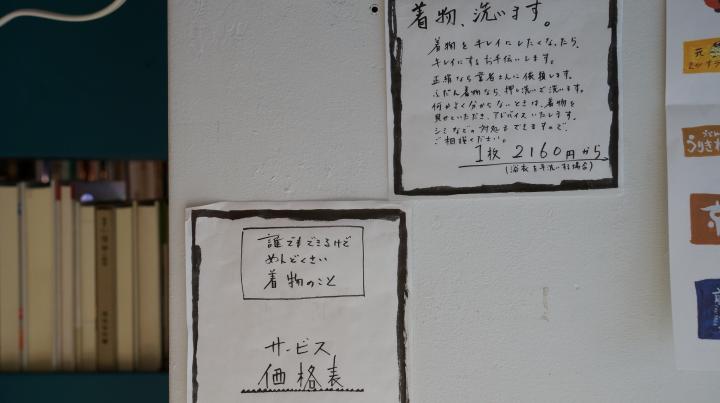 着物、洗います。
着物をキレイにしたくなったら、
キレイにするお手伝いします。
正絹なら業者さんに依頼します。
ふだん着物なら、押し洗いで洗います。
何がよく分からないときは、着物を
見せていただき、アドバイスいたします。
シミなどの対処もできますので、
ご相談ください。
1枚 2160円から
(浴衣を手洗いする場合)
誰でもできるけど
めんどくさい
着物のこと
サービス
価格表
元
うりきれ
京